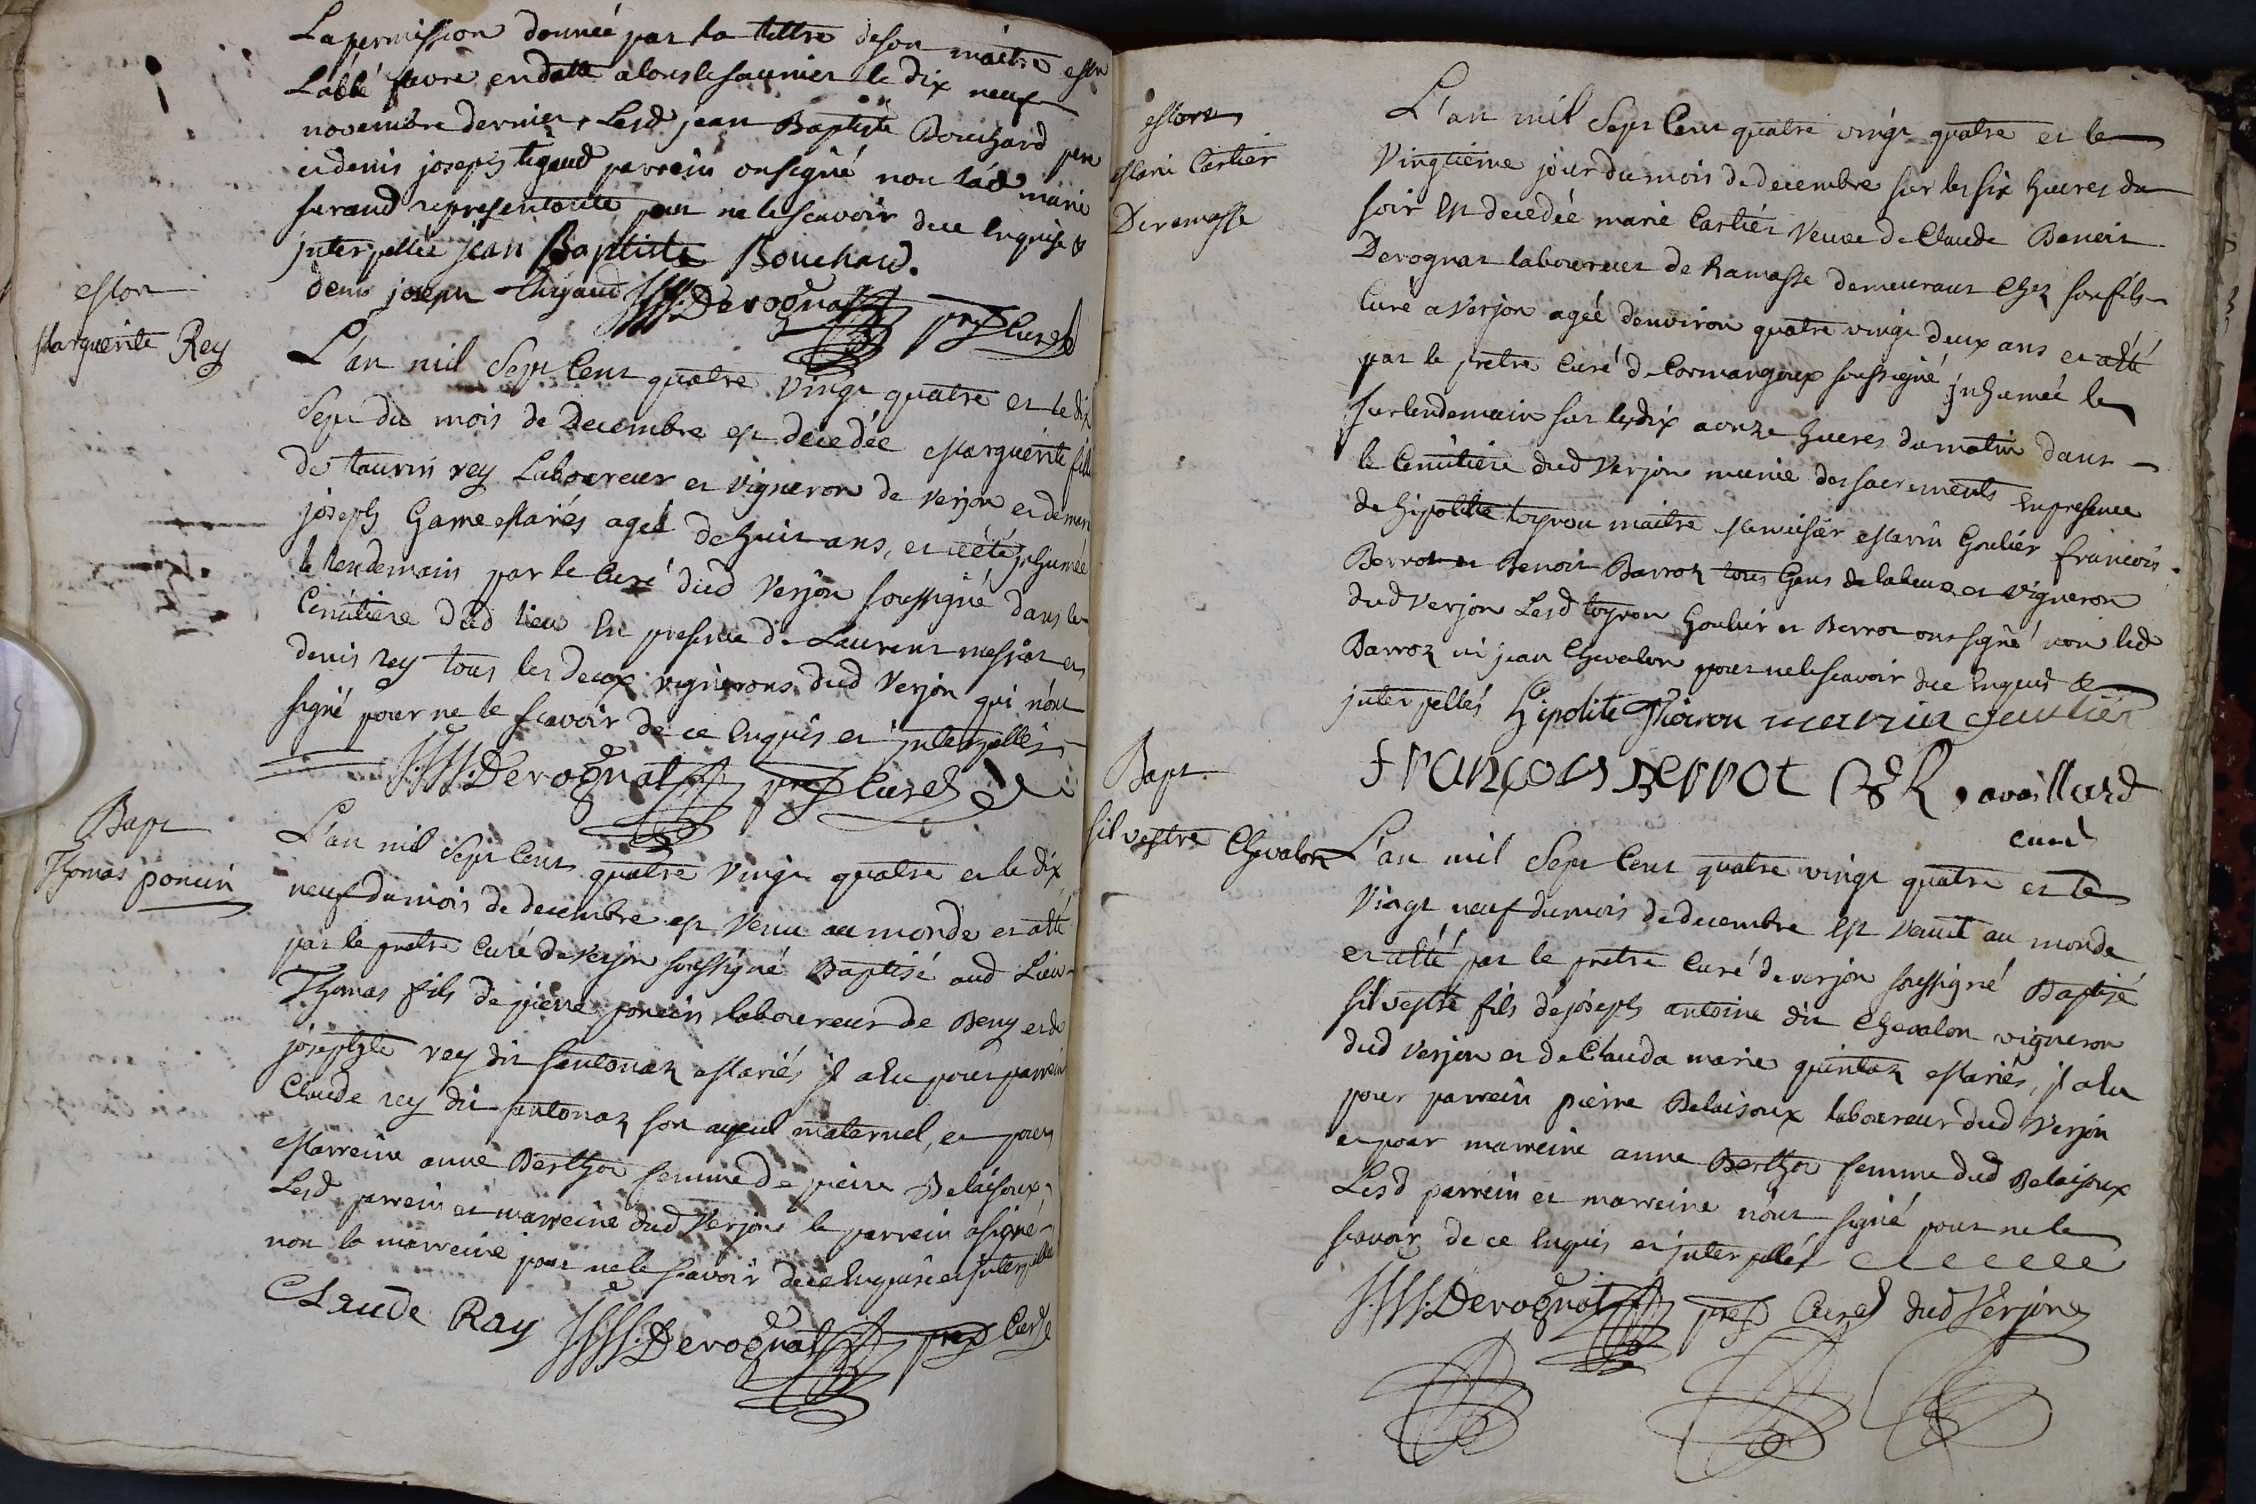 La permission donnée par la lettre de son maitre
L'abbé favre en datte a lons le saunier le dix neuf
novembre dernier, Lesd jean Baptiste Bouchard pere
et denis joseph tigaud parrein ont signé non lad marie
feraud representante pour ne le scavoir de ce enquise &
interpellée jean Baptiste Bouchard.
denis joseph thigaud Derognat ptre Curé
Mort
Marguerite Rey
L'an mil sept cent quatre vingt quatre et le dix
sept du mois de Decembre est decedée Marguerite fille
de taurin rey Laboureur et vigneron de Verjon et de marie
joseph Game Mariés agée de huit ans, et a été inhumée
le lendemain par le Curé dud Verjon soussigné dans le
Cimitiere dud lieu En presence de Laurent messiat et
denis rey tous les deux vignerons dud Verjon qui n'ont
signé pour ne le scavoir de ce enquis et interpellés
Derognat ptre Curé
Bapt
Thomas poncin
L'an mil sept cent quatre vingt quatre et le dix
neuf du mois de decembre est venu au monde et atté
par le pretre Curé de Verjon soussigné Baptisé aud Lieu
Thomas fils de pierre poncin laboureur de Beny et de
josephte rey dit santonaz Mariés il a eu pour parrein
Claude rey dit antonaz son ayeul maternel, et pour
Marreine anne Berthod femme de pierre Belaisoux,
Lesd parrein et marreine dud Verjon le parrein a signé
non la marreine pour ne le scavoir de ce enquise et interpellée
Claude Ray Derognat ptre Curé
Mort
Marie Cartier
De ramasse
L'an mil sept cent quatre vingt quatre et le
vingtième jour du mois de decembre sur les six heures du
soir Est decedée marie Cartier Veuve de Claude Benoit
Derognat laboureur de Ramasse demeurant Chez son fils
Curé a Verjon agée d'environ quatre vingt deux ans et atté
par le pretre Curé de Cormangoux soussigné inhumée le
surlendemain sur les dix a onze heures du matin dans
le Cimitiere dud Verjon munie des sacrements En presence
de hipolite toyron maitre Menuisier Marin Goulier francois
Berrot et Benoit Barroz tous Gens de labeur et vigneron
dud Verjon Lesd toyron Goulier et Berrot ont signé non led
Barroz ni jean Chevalon pour ne le scavoir de ce Enquis &
interpellés hipolite Thoiron marin Goulier
François Berrot availlard
curé
Bapt
Silvestre Chevalon
L'an mil Sept Cent quatre vingt quatre et le
Vingt neuf du mois de decembre Est venut au monde
et atté par le pretre Curé de verjon soussigné Baptisé
silvestre fils de joseph antoine dit Chevalon vigneron
dud Verjon et de Clauda marie quintaz Mariés, il a Eu
pour parrein pierre Belaisoux laboureur dud Verjon
et pour marreine anne Berthod femme dud Belaisoux
Lesd parrein et marreine n'ont signé pour ne le
scavoir de ce Enquis et interpellés
Derognat ptre Curé dud Verjon